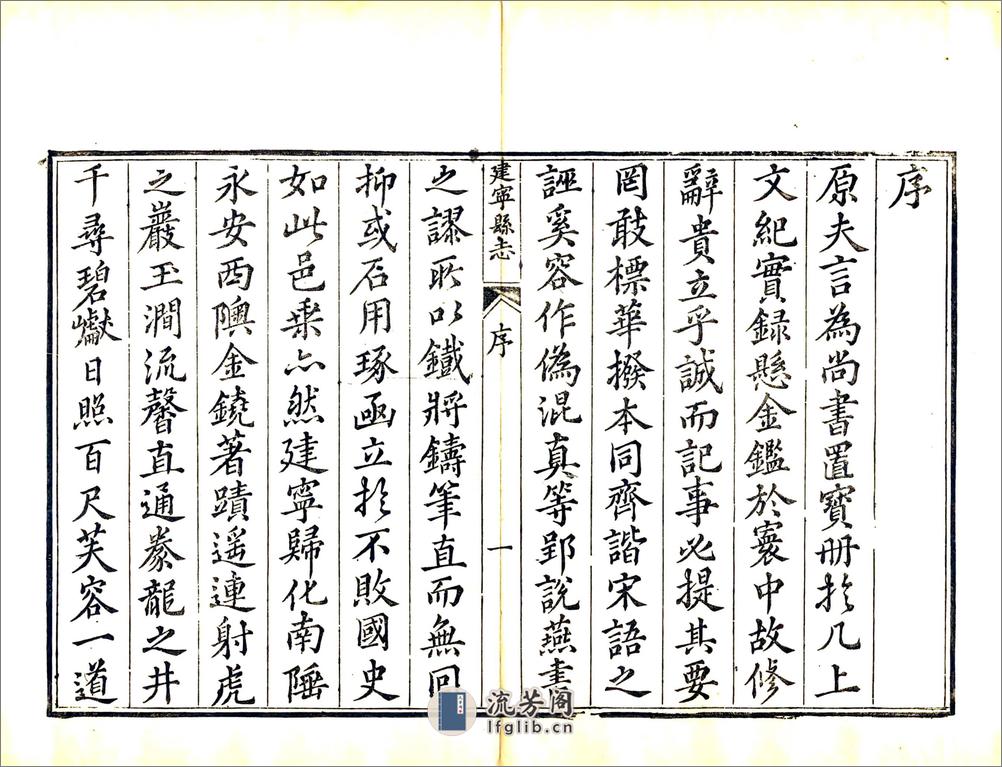 序
原夫言為尚書置寶册扵几上
文紀實録懸金鑑於寰中故修
辭貴立乎誠而記事必提其要
罔敢標華撥本同齊諧宋語之
誣奚容作偽混真等郢說燕書
建寧縣志
序
一
之謬所以鐵將鑄筆直而無回
抑或石用琢函立扵不敗國史
如此邑乗亦然建寧歸化南陲
永安西隩金鐃著蹟遥連射虎
之巖玉澗流馨直通豢龍之井
千尋碧巘日照百尺芙容一道
流芳阁
lfglib.cn